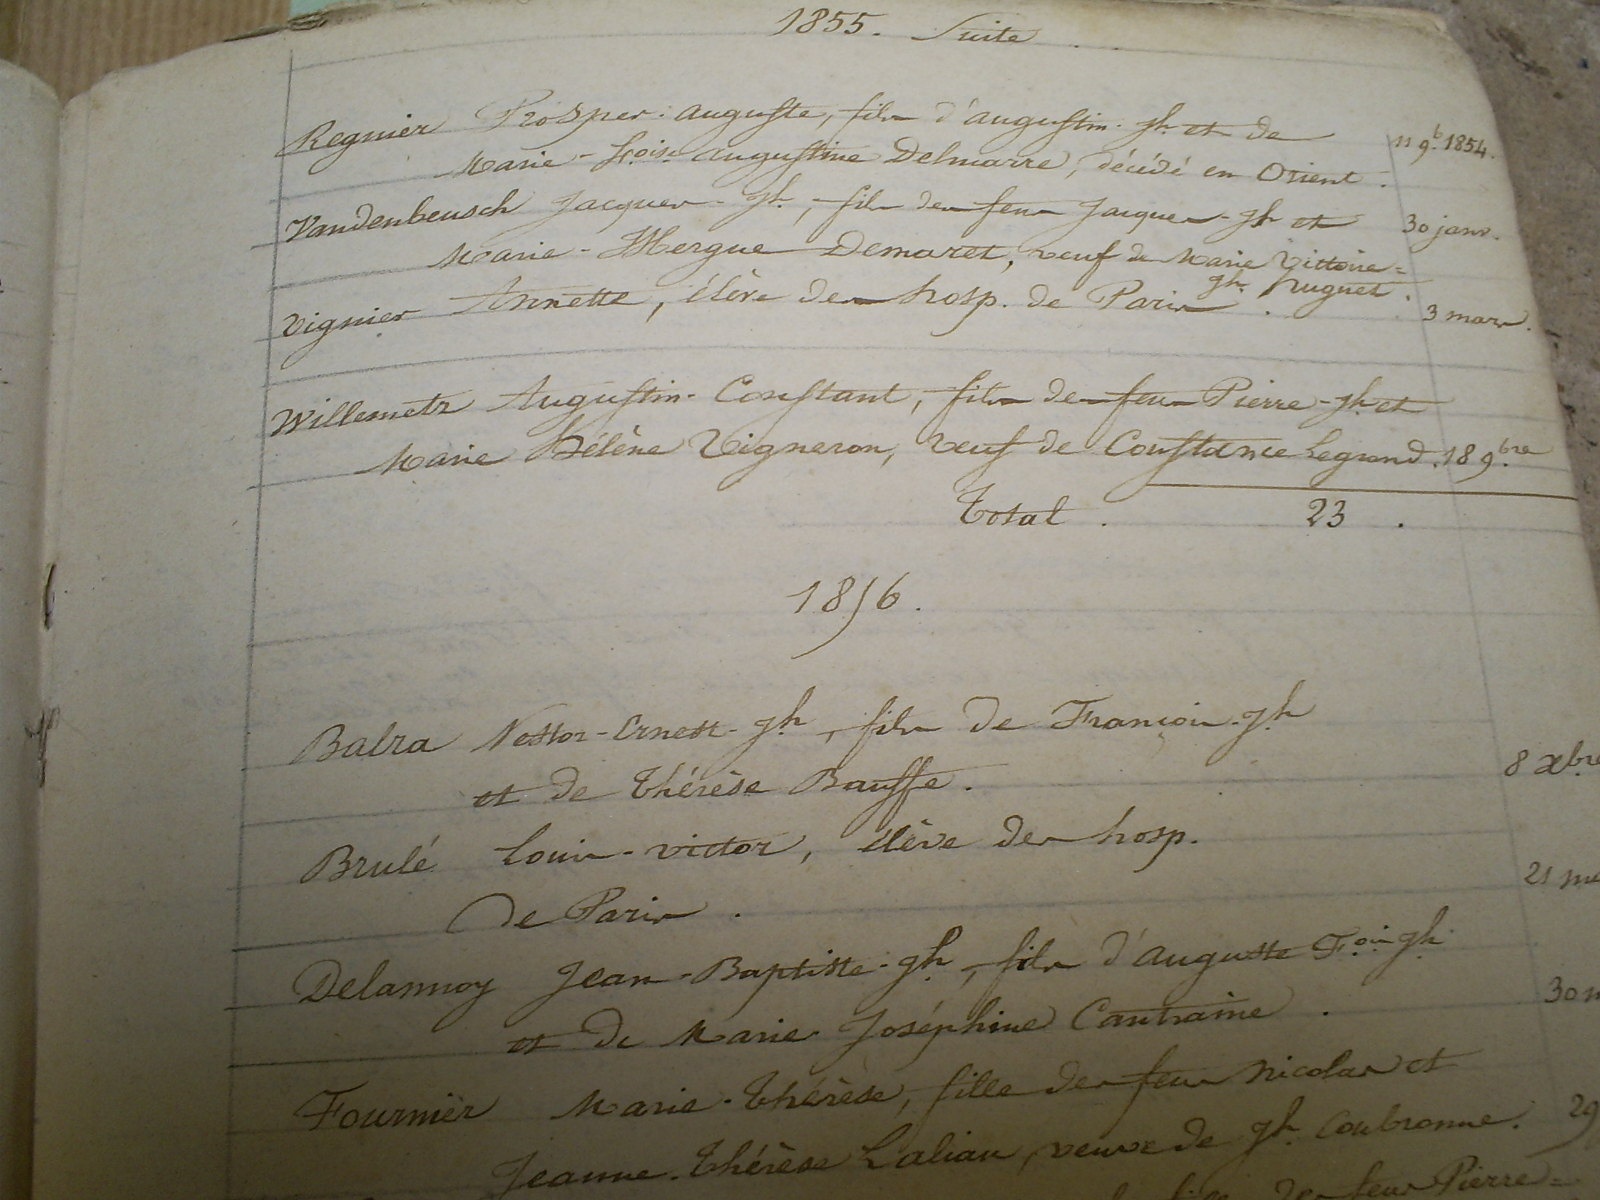 1855. Suite
Regnier Prosper-auguste, fils d'augustin-jh et de 11 9b 1854.
Marie-fçoise augustine Delmarre, décédé en Orient.
Vandenbeusch Jacques-jh, fils des feus Jacques-jh et 30 janv.
Marie-Mergue Demaret, veuf de Marie Victoire=
jh huguet.
Vignier Annette, élève des hosp. de Paris. 3 mars.
Willemetz Augustin-Constant, fils des feus Pierre-jh et
Marie Hélène Vigneron, veuf de Constance Legrand. 18 9bre
Total. 23.
1856.
Balra Nestor-Ernest-jh, fils de François-jh
et de thérèse Bauffe. 8 xbre
Brulé louis-victor, élève des hosp. 21
de Paris.
Delannoy Jean-Baptiste-jh, fils d'auguste Fois jh 30
et de Marie Joséphine Cantraine.
Fournier Marie-thérèse, fille des feus Nicolas et
Jeanne-thérèse Lalian, veuve de jh Coubronne. 29
des feus Pierre=